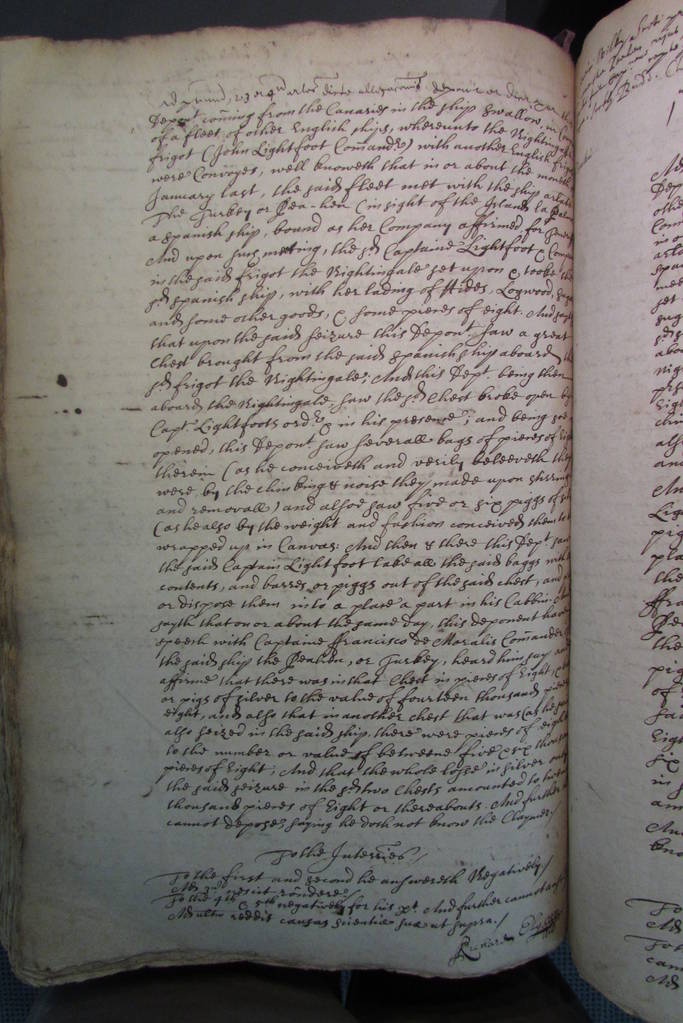 Ad primum, 2 3 et 4um artos dicte allegaconis deponit et dicit
Depot coming from the Canaries in the ship Swallow, in
of a fleet of other English ships, whereunto the Nightingale
frigot (John Lightfoot Comander) with another English
were Convoyes, well knoweth that in or about the moneth
January last, the said fleet met with the ship
The Turkey or Pea-hen (in sight of the Island la Palma
a Spanish ship, bound as her Company affirmed for
And upon such meeting, the sd Captaine Lightfoot & Company
in the said frigot the Nightingale set upon & tooke the
sd Spanish ship, with her lading of Hides, Logwood,
and some other goods, & some pieces of eight. And saith
that upon the said seizure this Depont saw a great
Chest brought from the said Spanish ship aboard the
sd frigot the Nightingale; And this Dept. being then
aboard the Nightingale saw the sd Chest broke open by
Capt Lightfoots ordr & in his presence; and being soe
opened, this Depont saw severall bags of pieces of
therein (as he conceiveth and verily beleeveth they
were, by the chinking & noise they made upon stirring
and removall) and alsoe saw five or six piggs of
(as he also by the weight and fashion conceived them to
wrapped up in Canvas: And then & there this Dept saw
the said Captain Lightfoot take all the said baggs with
contents, and barres or piggs out of the said chest, and
or dispose them into a place a part in his Cabbin.
sayth that on or about the same day, this deponent having
speech with Captaine ffrancisco de Moralis Comander
the said ship the Peahen, or Turkey, heard him say and
affirme that there was in that Chest in pieces of Eight,
or pigs of silver to the value of fourteen thousand pieces
eight, and also that in another chest that was (as he said
also seized in the said ship, there were pieces of eight
to the number or value of betweene five & six thousand
pieces of Eight; And that the whole losse in silver
the said seizure in the sd two Chests amounted to
thousand pieces of Eight or thereabouts. And further
cannot depose, saying he doth not know the Claymer.
To the Interries./
To the first and second he answereth Negatively/
Ad 3um nescit rondere/
To the 4th & 5th negatively for his pt. And further cannot
Ad ultio reddit causas scientiae suae ut supra./
Richard